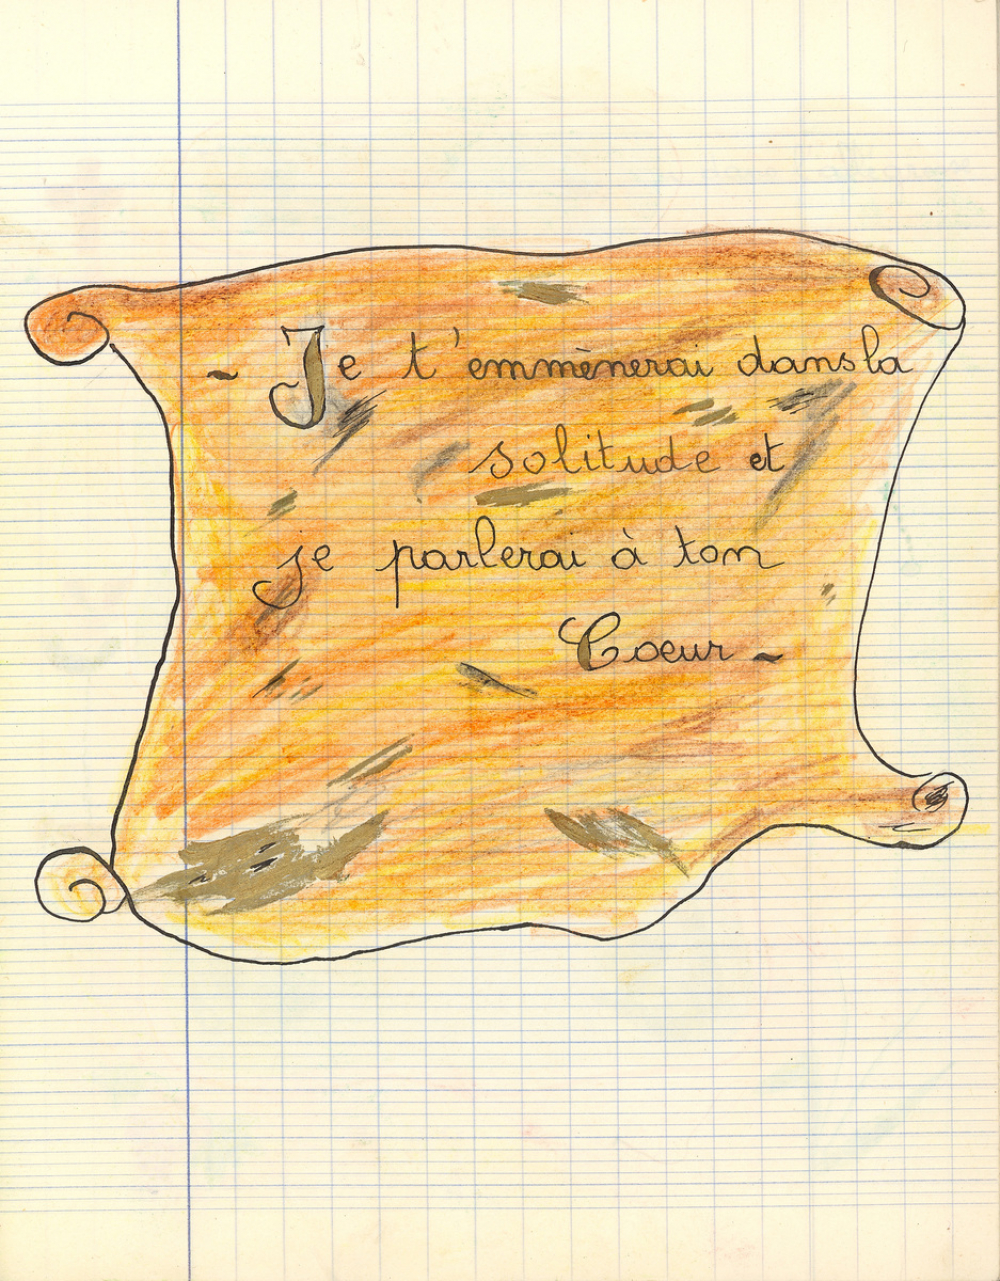 ~ Je t'emmènerai dans la
solitude et
je parlerai à ton
Coeur ~